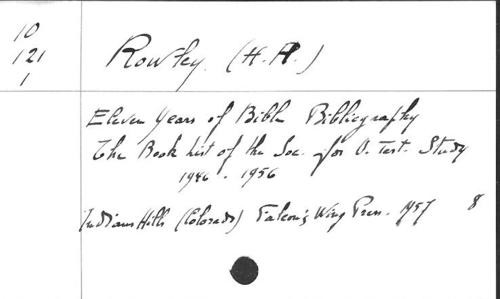 10
121
1
Rowley. (H. H.)
Eleven Years of Bible Bibliography
The Book List of the Soc. for O. Test. Study
1946 - 1956
Indians Hills (Colorado) Falcon's Wing Press. 1957 8